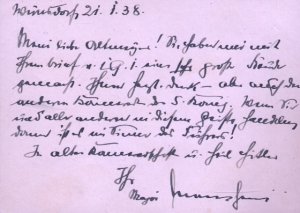 Wünsdorf, 21. I. 38.
Mein lieber Altmeyer! Sie haben mir mit
Ihrem Brief v. 19. I. eine sehr große Freude
gemacht. Ihnen herzl. Dank – aber auch den
anderen Kameraden der 5. Komp. Wenn Sie
und alle anderen in diesem Geiste handeln,
dann ist es im Sinne des Führers!
In alter Kameradschaft u. Heil Hitler
Ihr
Major